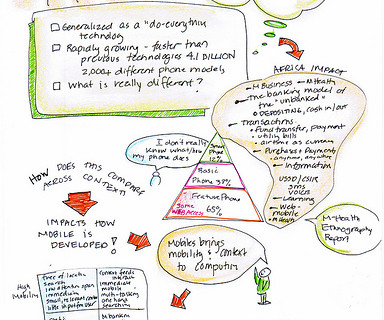 Generalized as a "do-everything
technology
Rapidly growing - faster than
previous technologies 4.1 BILLION
2,000+ different phone models
What is really different?
AFRICA IMPACT
M Business - M Health
The banking model of
the "unbanked"
DEPOSITING, cash in/out
Transactions -
Fund transfer, payment
utility bills
airtime as currency
Purchases + Payments
anytime, anywhere
Information
USSD/CSIR
sms
VOICES
Learning
Web-
mobile
M Health
I don't really
know what/how
my phone does
Smart
Phone
Basic
Phone
Feature Phone
65%
Some
WEB ACCESS
HOW DOES THIS COMPARE
ACROSS CONTEXT?
IMPACTS HOW
MOBILE IS
DEVELOPED!
M-Health
Ethnography
Report
Mobiles brings
mobility + context
to computing
High
Mobility
search
low attention span
immediate
Context
mobile
multi-tasking
one hand
searching